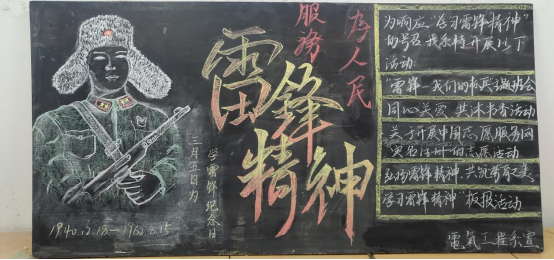 为人民
服务
雷锋
精神
三月五日为
学雷锋纪念日
1940.12.18.—1962.8.15
为响应“学习雷锋精神”
的号召 我系特开展以下
活动:
"雷锋—我们的
班会
同心关爱 共沐书香活动
关于开展中国志愿服务网
实名注册的志愿活动
弘扬雷锋精神,共
学习雷锋精神"板报活动
電氣工程系宣